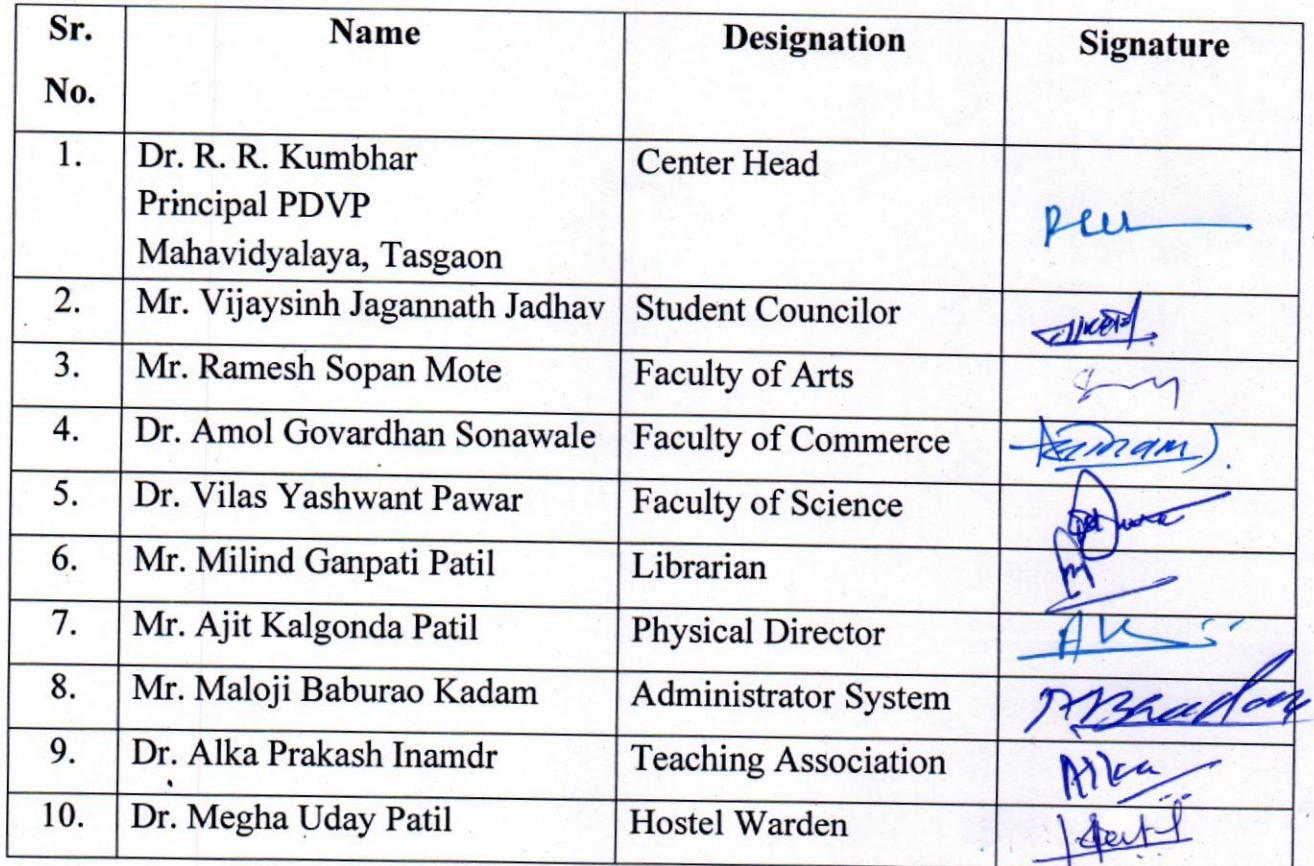 Sr. No. Name Designation Signature
1. Dr. R. R. Kumbhar Center Head
Principal PDVP
Mahavidyalaya, Tasgaon
2. Mr. Vijaysinh Jagannath Jadhav Student Councilor
3. Mr. Ramesh Sopan Mote Faculty of Arts
4. Dr. Amol Govardhan Sonawale Faculty of Commerce
5. Dr. Vilas Yashwant Pawar Faculty of Science
6. Mr. Milind Ganpati Patil Librarian
7. Mr. Ajit Kalgonda Patil Physical Director
8. Mr. Maloji Baburao Kadam Administrator System
9. Dr. Alka Prakash Inamdr Teaching Association Alka
10. Dr. Megha Uday Patil Hostel Warden